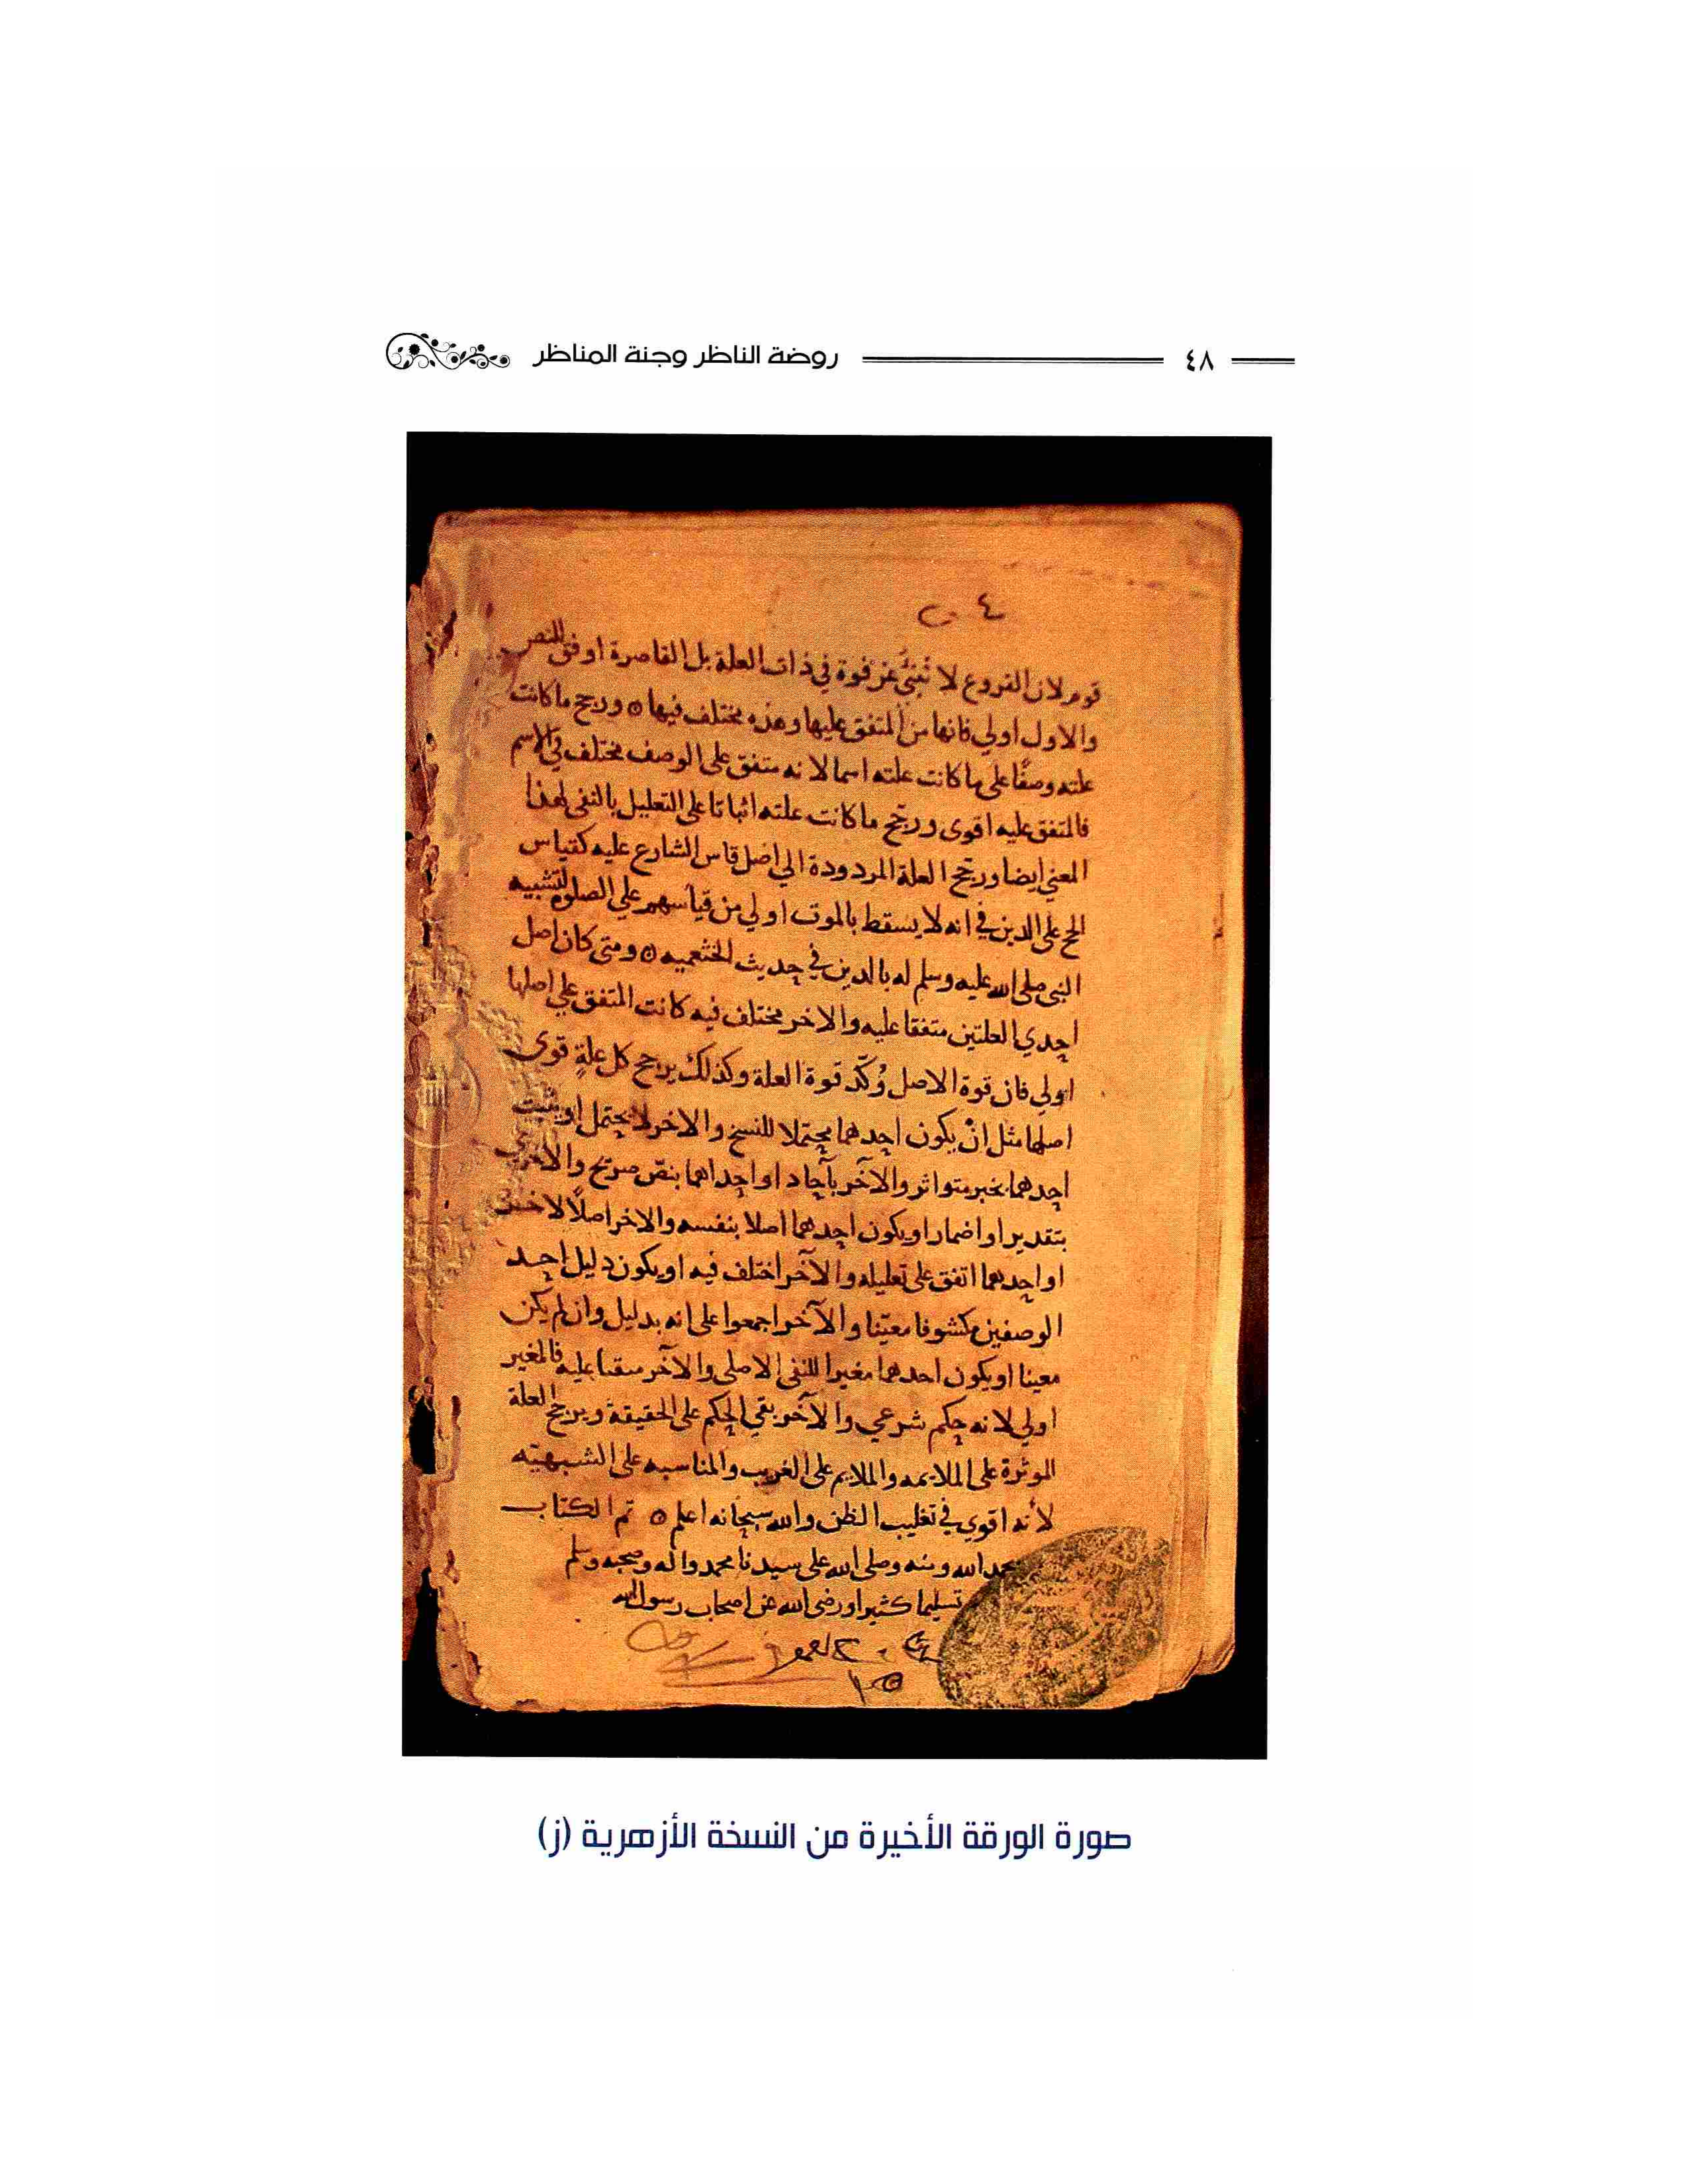 ٤٨ روضة الناظر وجنة المناظر
قوم لان الفروع لا تُنبئُ عن قوة في ذات العلة بل القاصرة اوفق للنص
والاول اولي فانها من المتفق عليها وهذه مختلف فيها ۞ ورجح ما كانت
علته وصفًا على ما كانت علته اسما لانه متفق على الوصف مختلف في الاسم
فالمتفق عليه اقوى ورجّح ما كانت علته اثباتا على التعليل بالنفى لهذا
المعني ايضا ورجّح العلة المردودة الي اصل قاس الشارع عليه كقياس
الحج على الدين في انه لا يسقط بالموت اولي من قياسهم علي الصلوه لتشبيه
النبي صلى الله عليه وسلم له بالدين في حديث الخثعميه ۞ ومتى كان اصل
احدي العلتين متفقا عليه والاخر مختلف فيه كانت المتفق علي اصلها
اولي فان قوة الاصل تُؤكّد قوة العلة وكذلك يرجح كل علةٍ قوى
اصلها مثل انْ يكون احدهما محتملا للنسخ والاخر لا يحتمل او يثبت
احدهما بخبر متواتر والآخر بآحاد او احداهما بنصّ صريح والاخرى
بتقدير او اضمار او يكون احدهما اصلا بنفسه والاخر اصلًا لاخر
او احدهما اتفق على تعليله والآخر اختلف فيه او يكون دليل احد
الوصفين مكشوفا معيّنا والآخر اجمعوا على انه بدليل وان لم يكن
معينا او يكون احدهما مغيرا للنفى الاصلى والآخر مبقيا عليه فالمغير
اولي لانه حكم شرعي والآخر بقي الحكم على الحقيقة ويرجح العلة
الموثرة على الملايمه والملايم على الغريب والمناسبه على الشبهيّه
لأنه اقوي في تغليب الظن والله سبحانه اعلم ۞ تم الكتاب
بحمد الله ومنه وصلى الله على سيدنا محمد واله وصحبه وسلم
تسليما كثيرا ورضى الله عن اصحاب رسول الله
صورة الورقة الأخيرة من النسخة الأزهرية (ز)